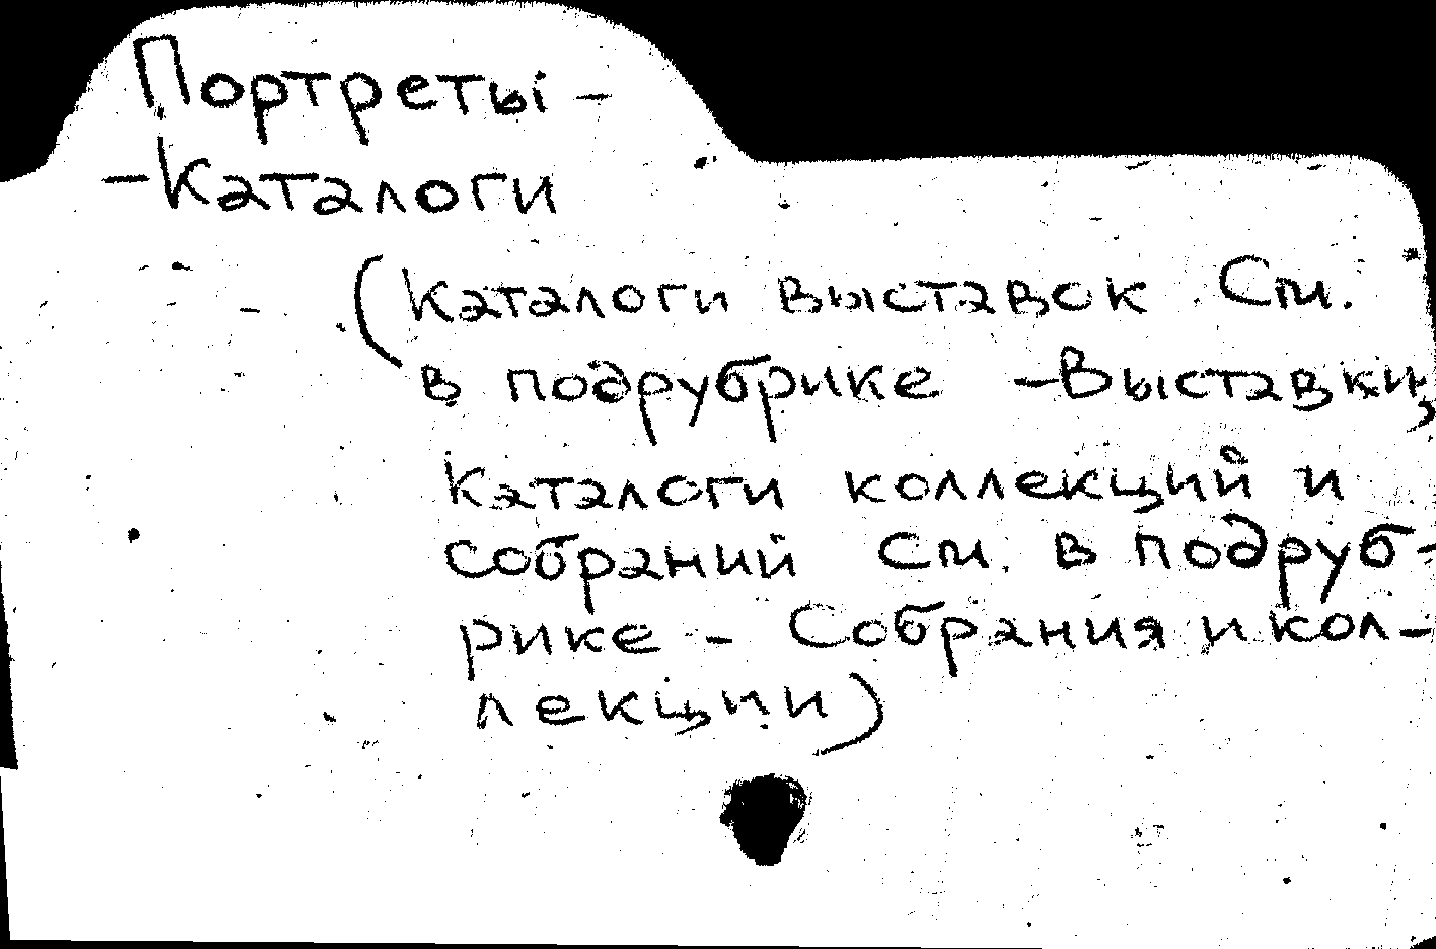 Портреты –
– Каталоги
(Каталоги выставок См.
в подрубрике – Выставки,
Каталоги коллекций и
собраний См. в подруб-
рике – Собрания и кол-
лекции)